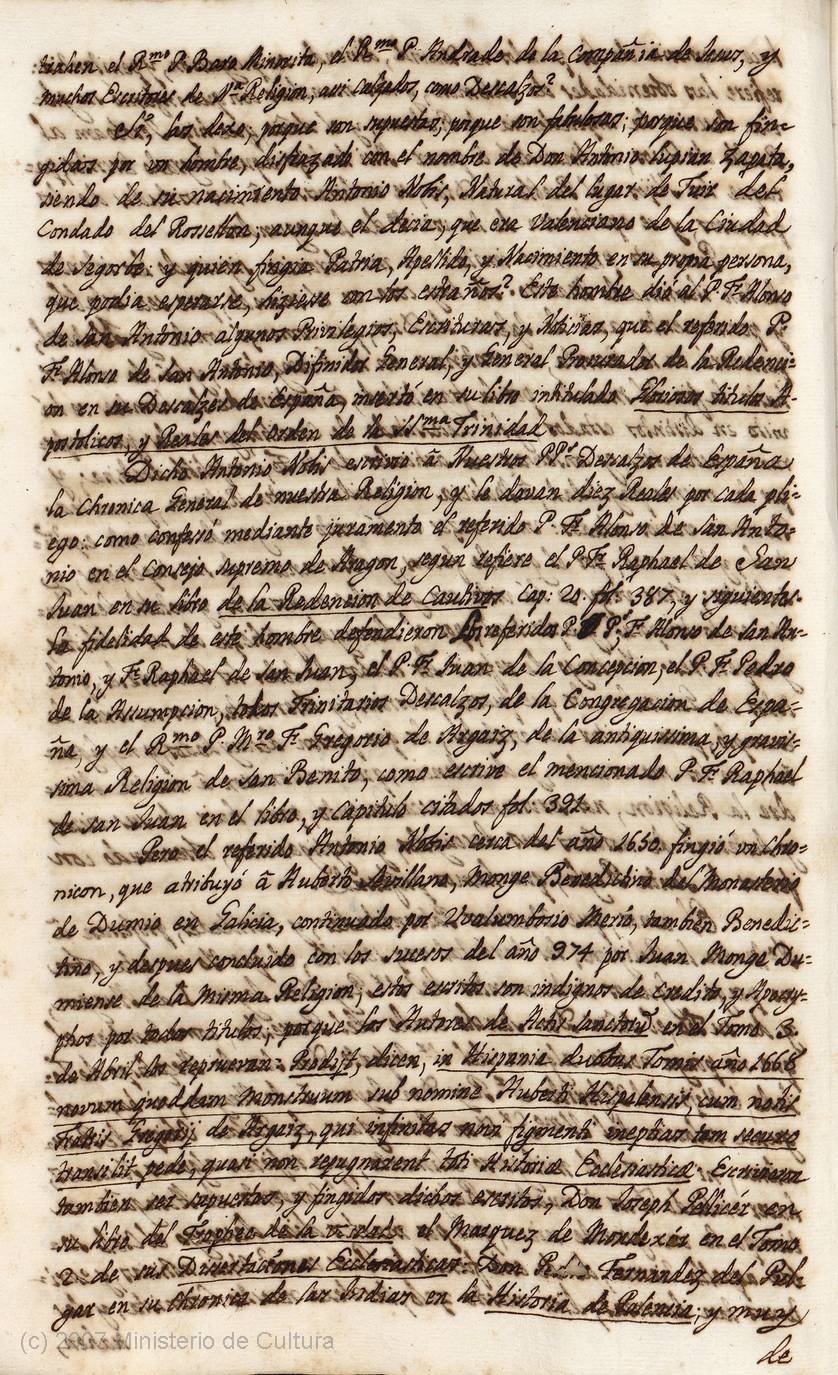 trahen el R.mo P. Baro Minorita, el R.mo P. Andrade de la Compañia de Jesus, y
muchos Escritores de Nra Religion, assi Calzados, como Descalzos?
los dexo, porque son supuestas; porque son fabulosas; porque son fin-
gidas por un hombre, disfrazado con el nombre de Don Antonio Lupian Zapata,
siendo de su nacimiento Antonio Nobis, Natural del lugar de Tuir del
Condado del Rossellon; aunque el decia, que era Valenciano de la Ciudad
de Segorbe: y quien fingia Patria, Apellido, y Nacimiento en su propia persona,
que podia esperarse, hiziesse con los estraños? Este hombre dió al P. Fr. Alonso
de San Antonio algunos Privilegios, Escrituras, y Noticias, que el referido P.
Fr. Alonso de San Antonio, Difinidor General, y General Procurador de la Redenci-
on en su Descalzes de España, insertó en su libro intitulado Glorioso titulos A-
postolicos, y Reales del Orden de la SS.ma Trinidad
Dicho Antonio Nobis escrivió â Nuestros PP.s Descalzos de España
la Chronica General de nuestra Religion, y le davan diez Reales por cada pli-
ego: como confesó mediante juramento el referido P. Fr. Alonso de San Anto-
nio en el Consejo supremo de Aragon, segun refiere el P. Fr. Raphael de San
Juan en su libro de la Redencion de Cautivos cap: 20. fol. 387, y siguientes.
La fidelidad de este hombre defendieron los referidos P. P.s Fr. Alonso de San An-
tonio, y Fr. Raphael de San Juan, el P. Fr. Juan de la Concepcion, el P. Fr. Pedro
de la Assumpcion, todos Trinitarios Descalzos, de la Congregacion de Espa-
ña, y el R.mo P. M.ro Fr. Gregorio de Argaiz, de la antiquissima, y gravis-
sima Religion de San Benito, como escrive el mencionado P. Fr. Raphael
de San Juan en el libro, y Capitulo citados fol. 391.
Pero el referido Antonio Nobis cerca del año 1650. fingió un Chro-
nicon, que atribuyó â Huberto Sevillano, Monge Benedictino del Monasterio
de Dumio en Galicia, continuado por Uvalumbosio Merio, tambien Benedic-
tino, y despues concluido con los sucesos del año 974 por Juan Monge Du-
miense de la misma Religion; estos escritos son indignos de credito, y Apocry-
phos por todos titulos; porque los Autores de Actis sanctorũ en el Tomo 3.
de Abril los reprueran: Prodijt, dicen, in Hispania duobus Tomis año 1668
novum quoddam monstruum sub nomine Huberti Hispalensis, cum notis
Fratris Gregorij de Argaiz, qui infinitas non figmenti ineptias tam securo
transilit pede, quasi non repugnarent toti Historiæ Ecclesiasticæ. Escrivieron
tambien ser supuestos, y fingidos dichos escritos, Don Joseph Pellicér en
su libro del Tropheo de la verdad: el Marquez de Mondexár en el Tomo
2. de sus Disertaciones Ecclesiasticas: Don Fernandez del Pul-
gar en su Chronica de las Indias en la Historia de Palencia; y muy
de
(c) 2007 Ministerio de Cultura